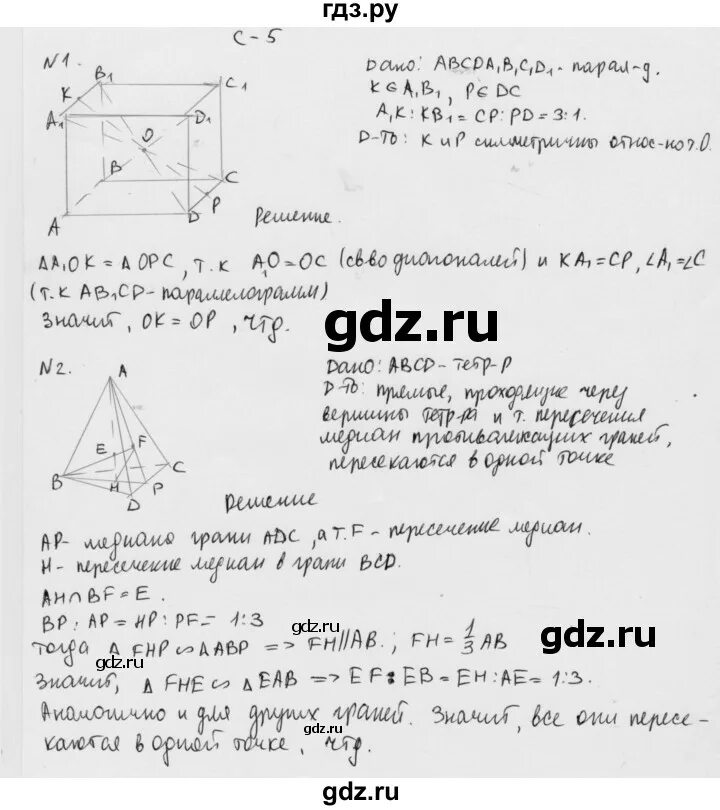 гдз.ру
С-5
N1.
B1
C1
K
A1
D1
O
B
C
P
A
D
Дано: ABCDA1B1C1D1 - парал-д.
K∈A1B1, P∈DC
A1K:KB1=CP:PD=3:1.
Д-ть: K и P симметричны относ-но т.O.
Решение.
ΔA1OK=ΔOPC, т.к A1O=OC (св-во диагоналей) и KA1=CP, ∠A1=∠C
(т.к AB1CD-параллелограмм)
Значит, OK=OP, чтд.
gdz.ru
N2.
A
E
F
B
C
H
P
D
Дано: ABCD-тетр-р
Д-ть: прямые, проходящие через
вершины тетр-ра и т. пересечения
медиан противолежащих граней,
пересекаются в одной точке
Решение
AP- медиана грани ADC, а т.F - пересечение медиан.
H- пересечение медиан в грани BCD.
AH∩BF=E.
BP:AP=HP:PF= 1:3
gdz.ru
тогда Δ FHP ∽ ΔABP => FH||AB.; FH=1/3 AB
gdz.ru
Значит, Δ FHE ∽ ΔEAB => EF:EB=EH:AE=1:3.
Аналогично и для других граней. Значит, все они пересе-
каются в одной точке, чтд.
gdz.ru
gdz.ru